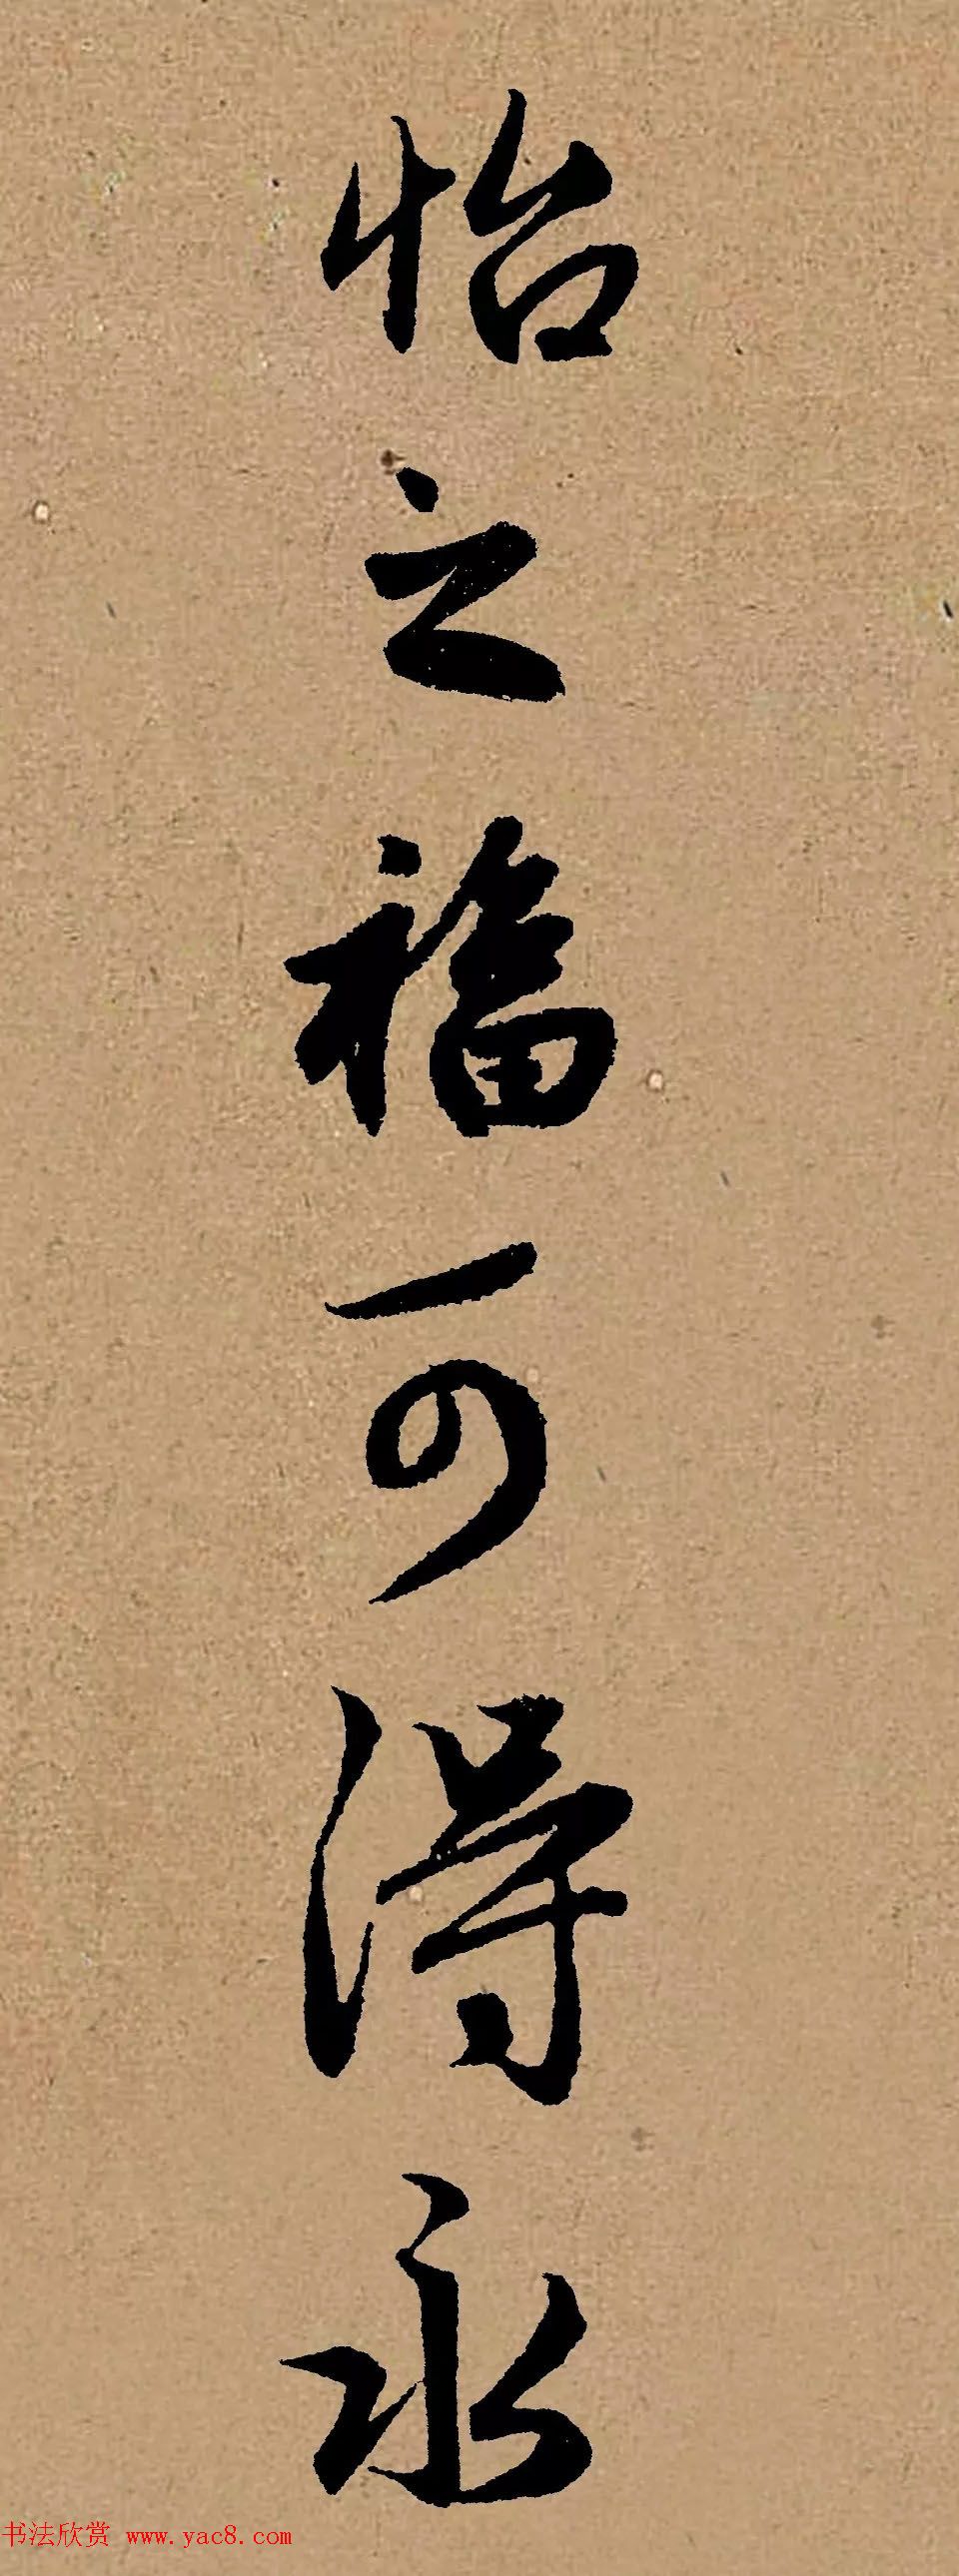 怡之福可得永
书法欣赏 www.yac8.com